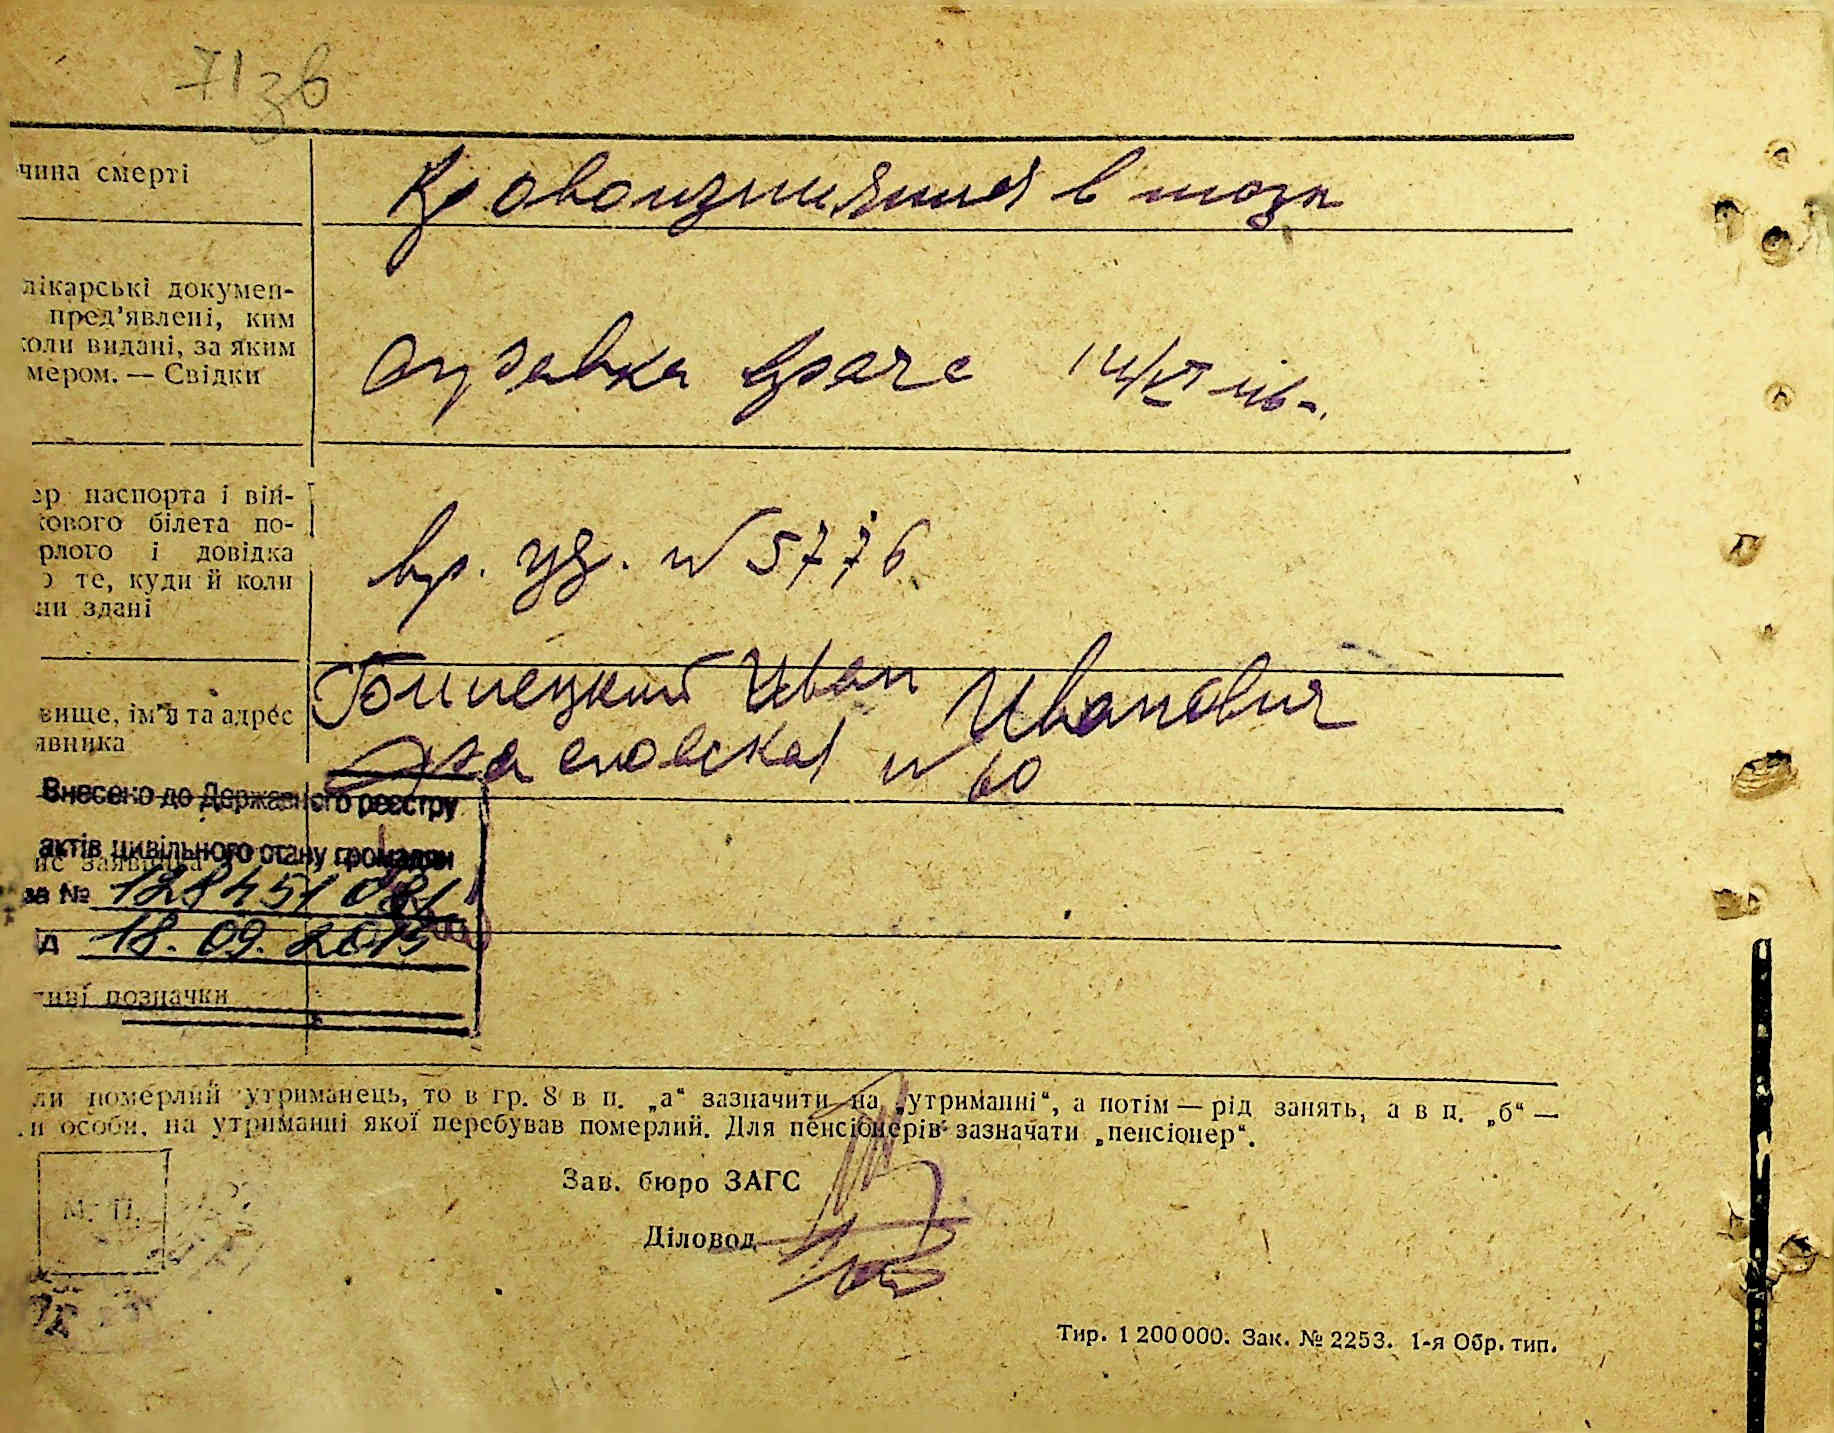 71зв
чина смерті
Кровоизлияния в мозг
лікарські докумен-
пред’явлені, ким
коли видані, за яким
мером. — Свідки
справка врача 14/VI
ер паспорта і вій-
кового білета по-
рлого і довідка
о те, куди й коли
ни здані
вр. уд. № 5776
вище, ім’я та адрес
явника
Иван Иванович
№ 60
Внесено до Державного реєстру
актів цивільного стану громадян
ис заявника
за № 128451081
д 18.09.2015
тиві позначки
ли померлий утриманець, то в гр. 8 в п. „а“ зазначити на „утриманні“, а потім — рід занять, а в п. „б“ —
и особи, на утриманні якої перебував померлий. Для пенсіонерів зазначати „пенсіонер“.
М. П.
Зав. бюро ЗАГС
Діловод
Тир. 1 200 000. Зак. № 2253. 1-я Обр. тип.